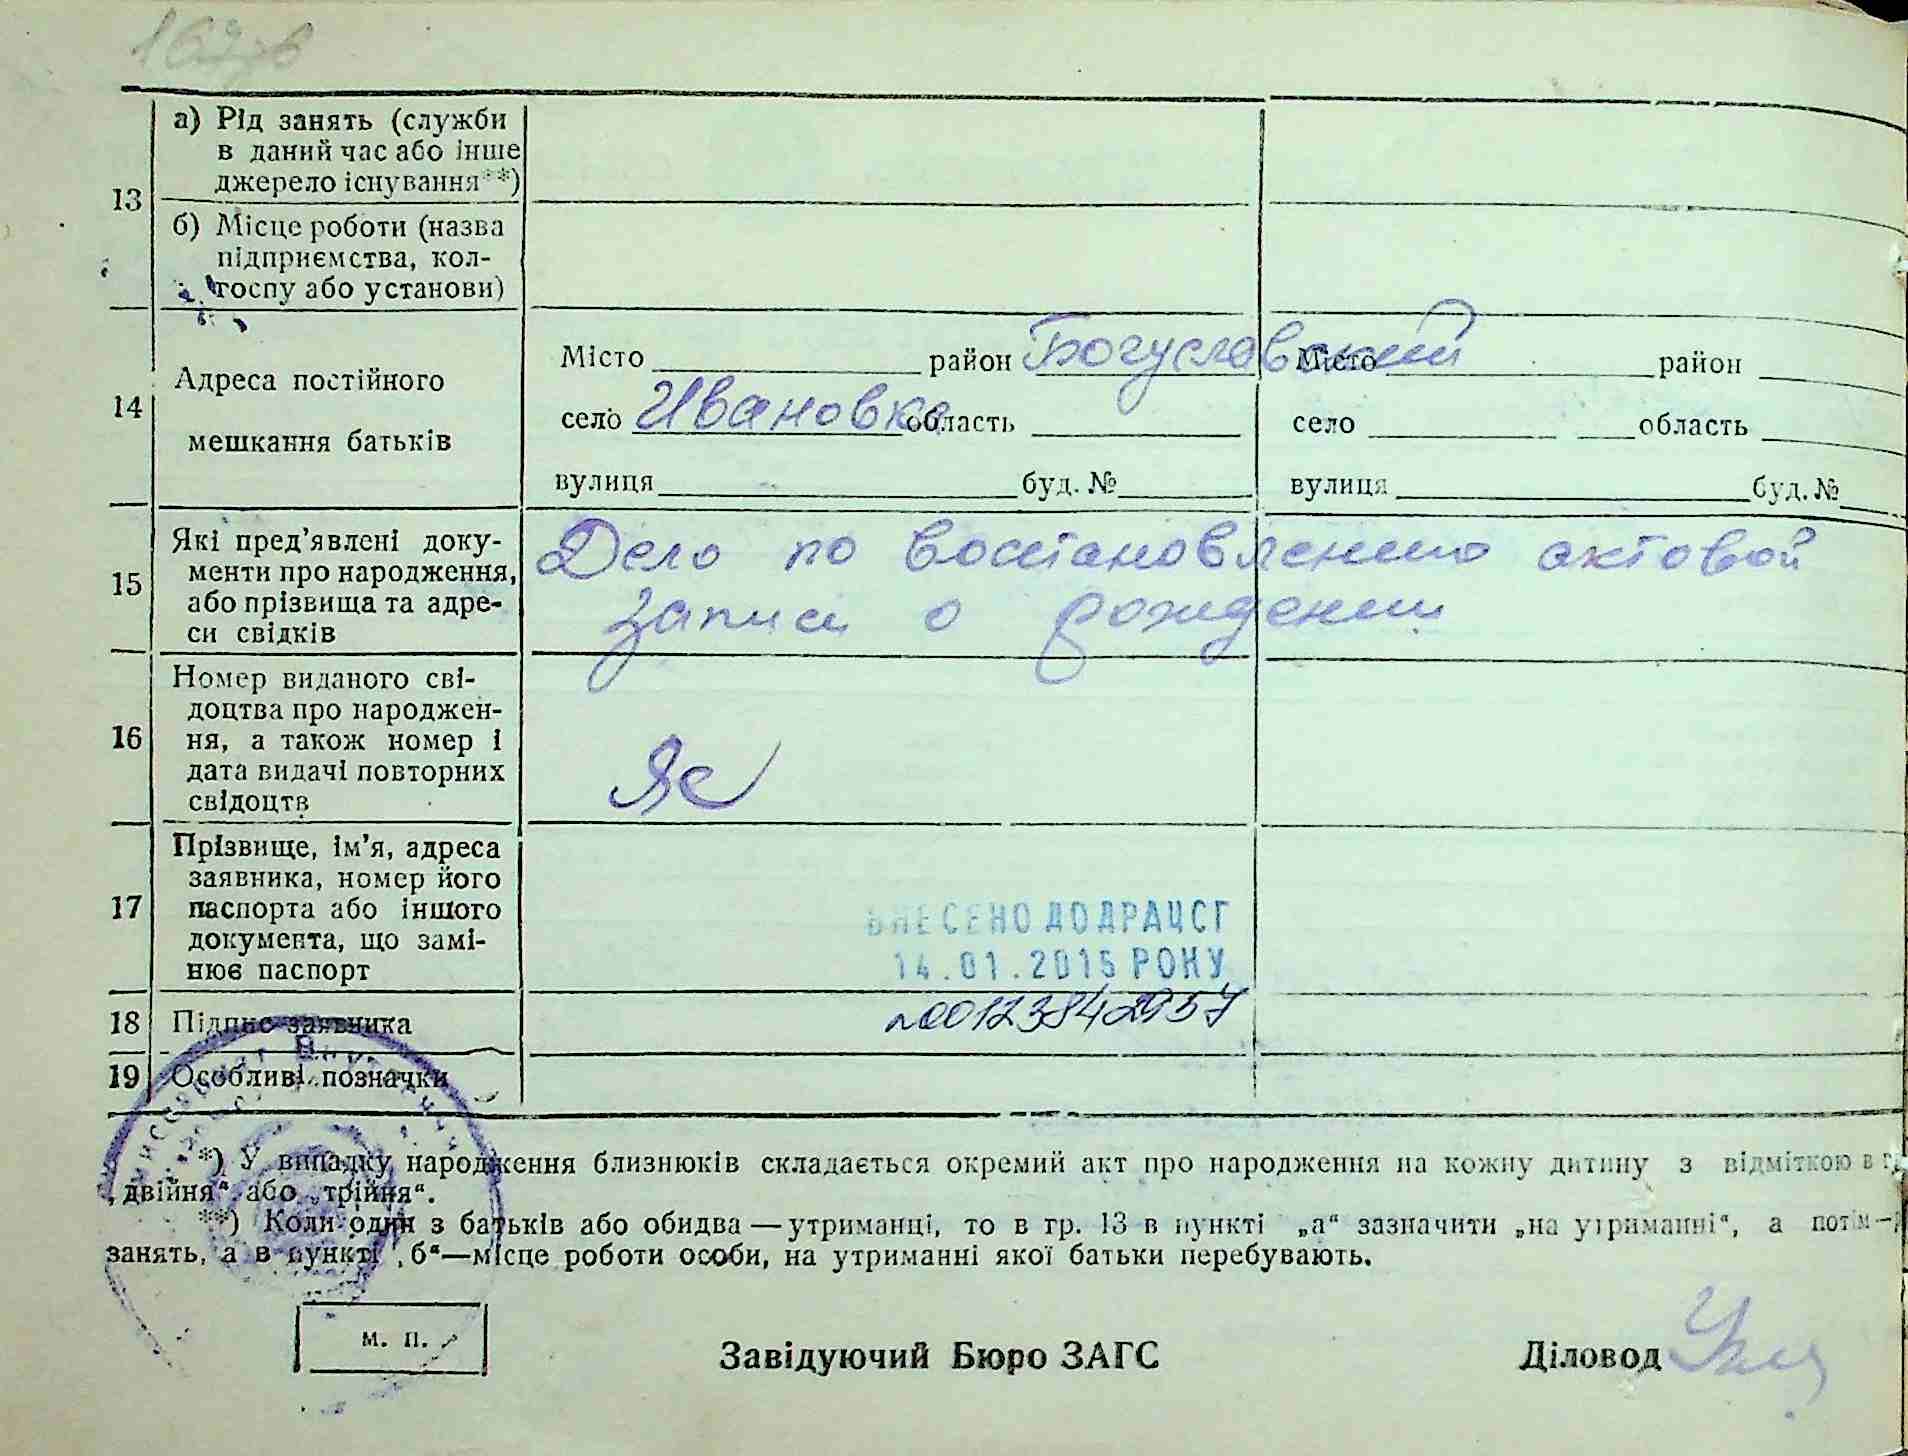 167
13
а) Рід занять (служби
в даний час або інше
джерело існування**)
б) Місце роботи (назва
підприємства, кол-
госпу або установи)
14
Адреса постійного
мешкання батьків
Місто район Богуславский
село Ивановка область
вулиця буд. №
Місто район
село область
вулиця буд. №
15
Які пред’явлені доку-
менти про народження,
або прізвища та адре-
си свідків
Дело по восстановлению актовой
записи о рождении
16
Номер виданого сві-
доцтва про народжен-
ня, а також номер і
дата видачі повторних
свідоцтв
17
Прізвище, ім’я, адреса
заявника, номер його
паспорта або іншого
документа, що замі-
нює паспорт
ВНЕСЕНО ДО ДРАЦСГ
14.01.2015 РОКУ
18
Підпис заявника
00123842957
19
Особливі позначки
*) У випадку народження близнюків складається окремий акт про народження на кожну дитину з відміткою в
„двійня“ або „трійня“.
**) Коли один з батьків або обидва — утриманці, то в гр. 13 в пункті „а“ зазначити „на утриманні“, а потім —
занять, а в пункті „б“ — місце роботи особи, на утриманні якої батьки перебувають.
м. п.
Завідуючий Бюро ЗАГС
Діловод